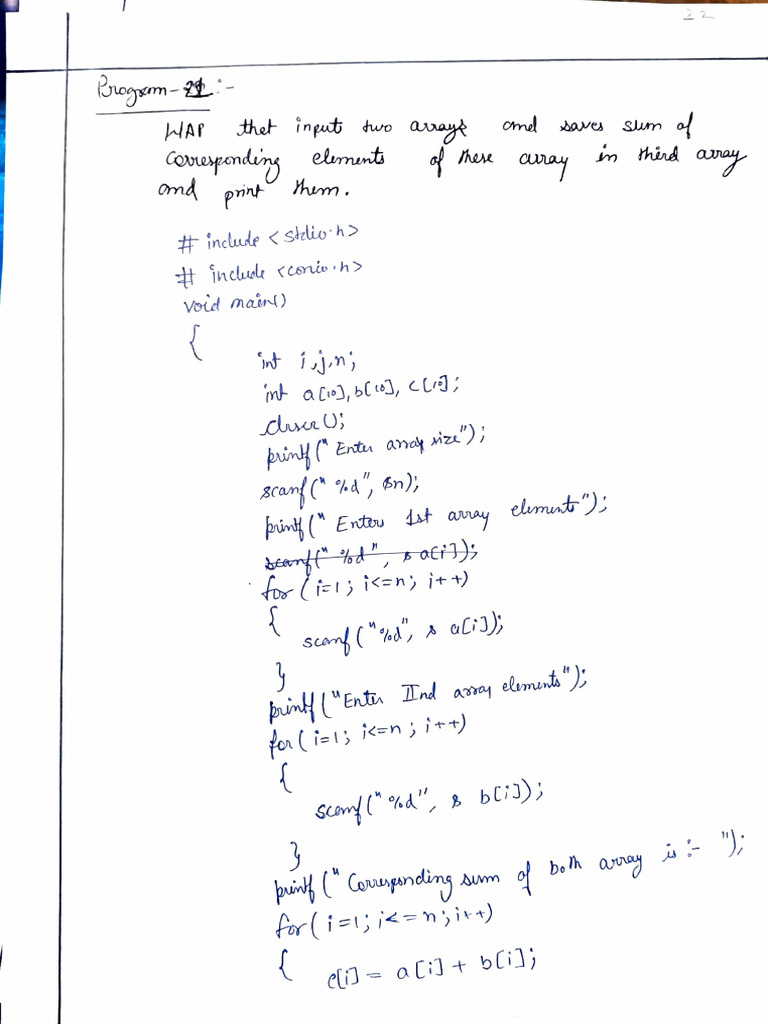 22
Program-21:-
WAP that input two arrays and saves sum of
corresponding elements of these array in third array
and print them.
# include <stdio.h>
# include <conio.h>
void main()
{
int i,j,n;
int a[10], b[10], c[10];
clrscr();
printf("Enter array size");
scanf("%d", &n);
printf("Enter 1st array elements");
scanf("%d", & a[i]);
for (i=1; i<=n; i++)
{
scanf("%d", & a[i]);
}
printf("Enter IInd array elements");
for (i=1; i<=n; i++)
{
scanf("%d", & b[i]);
}
printf("Corresponding sum of both array is:- ");
for (i=1; i<=n; i++)
{ c[i] = a[i] + b[i];